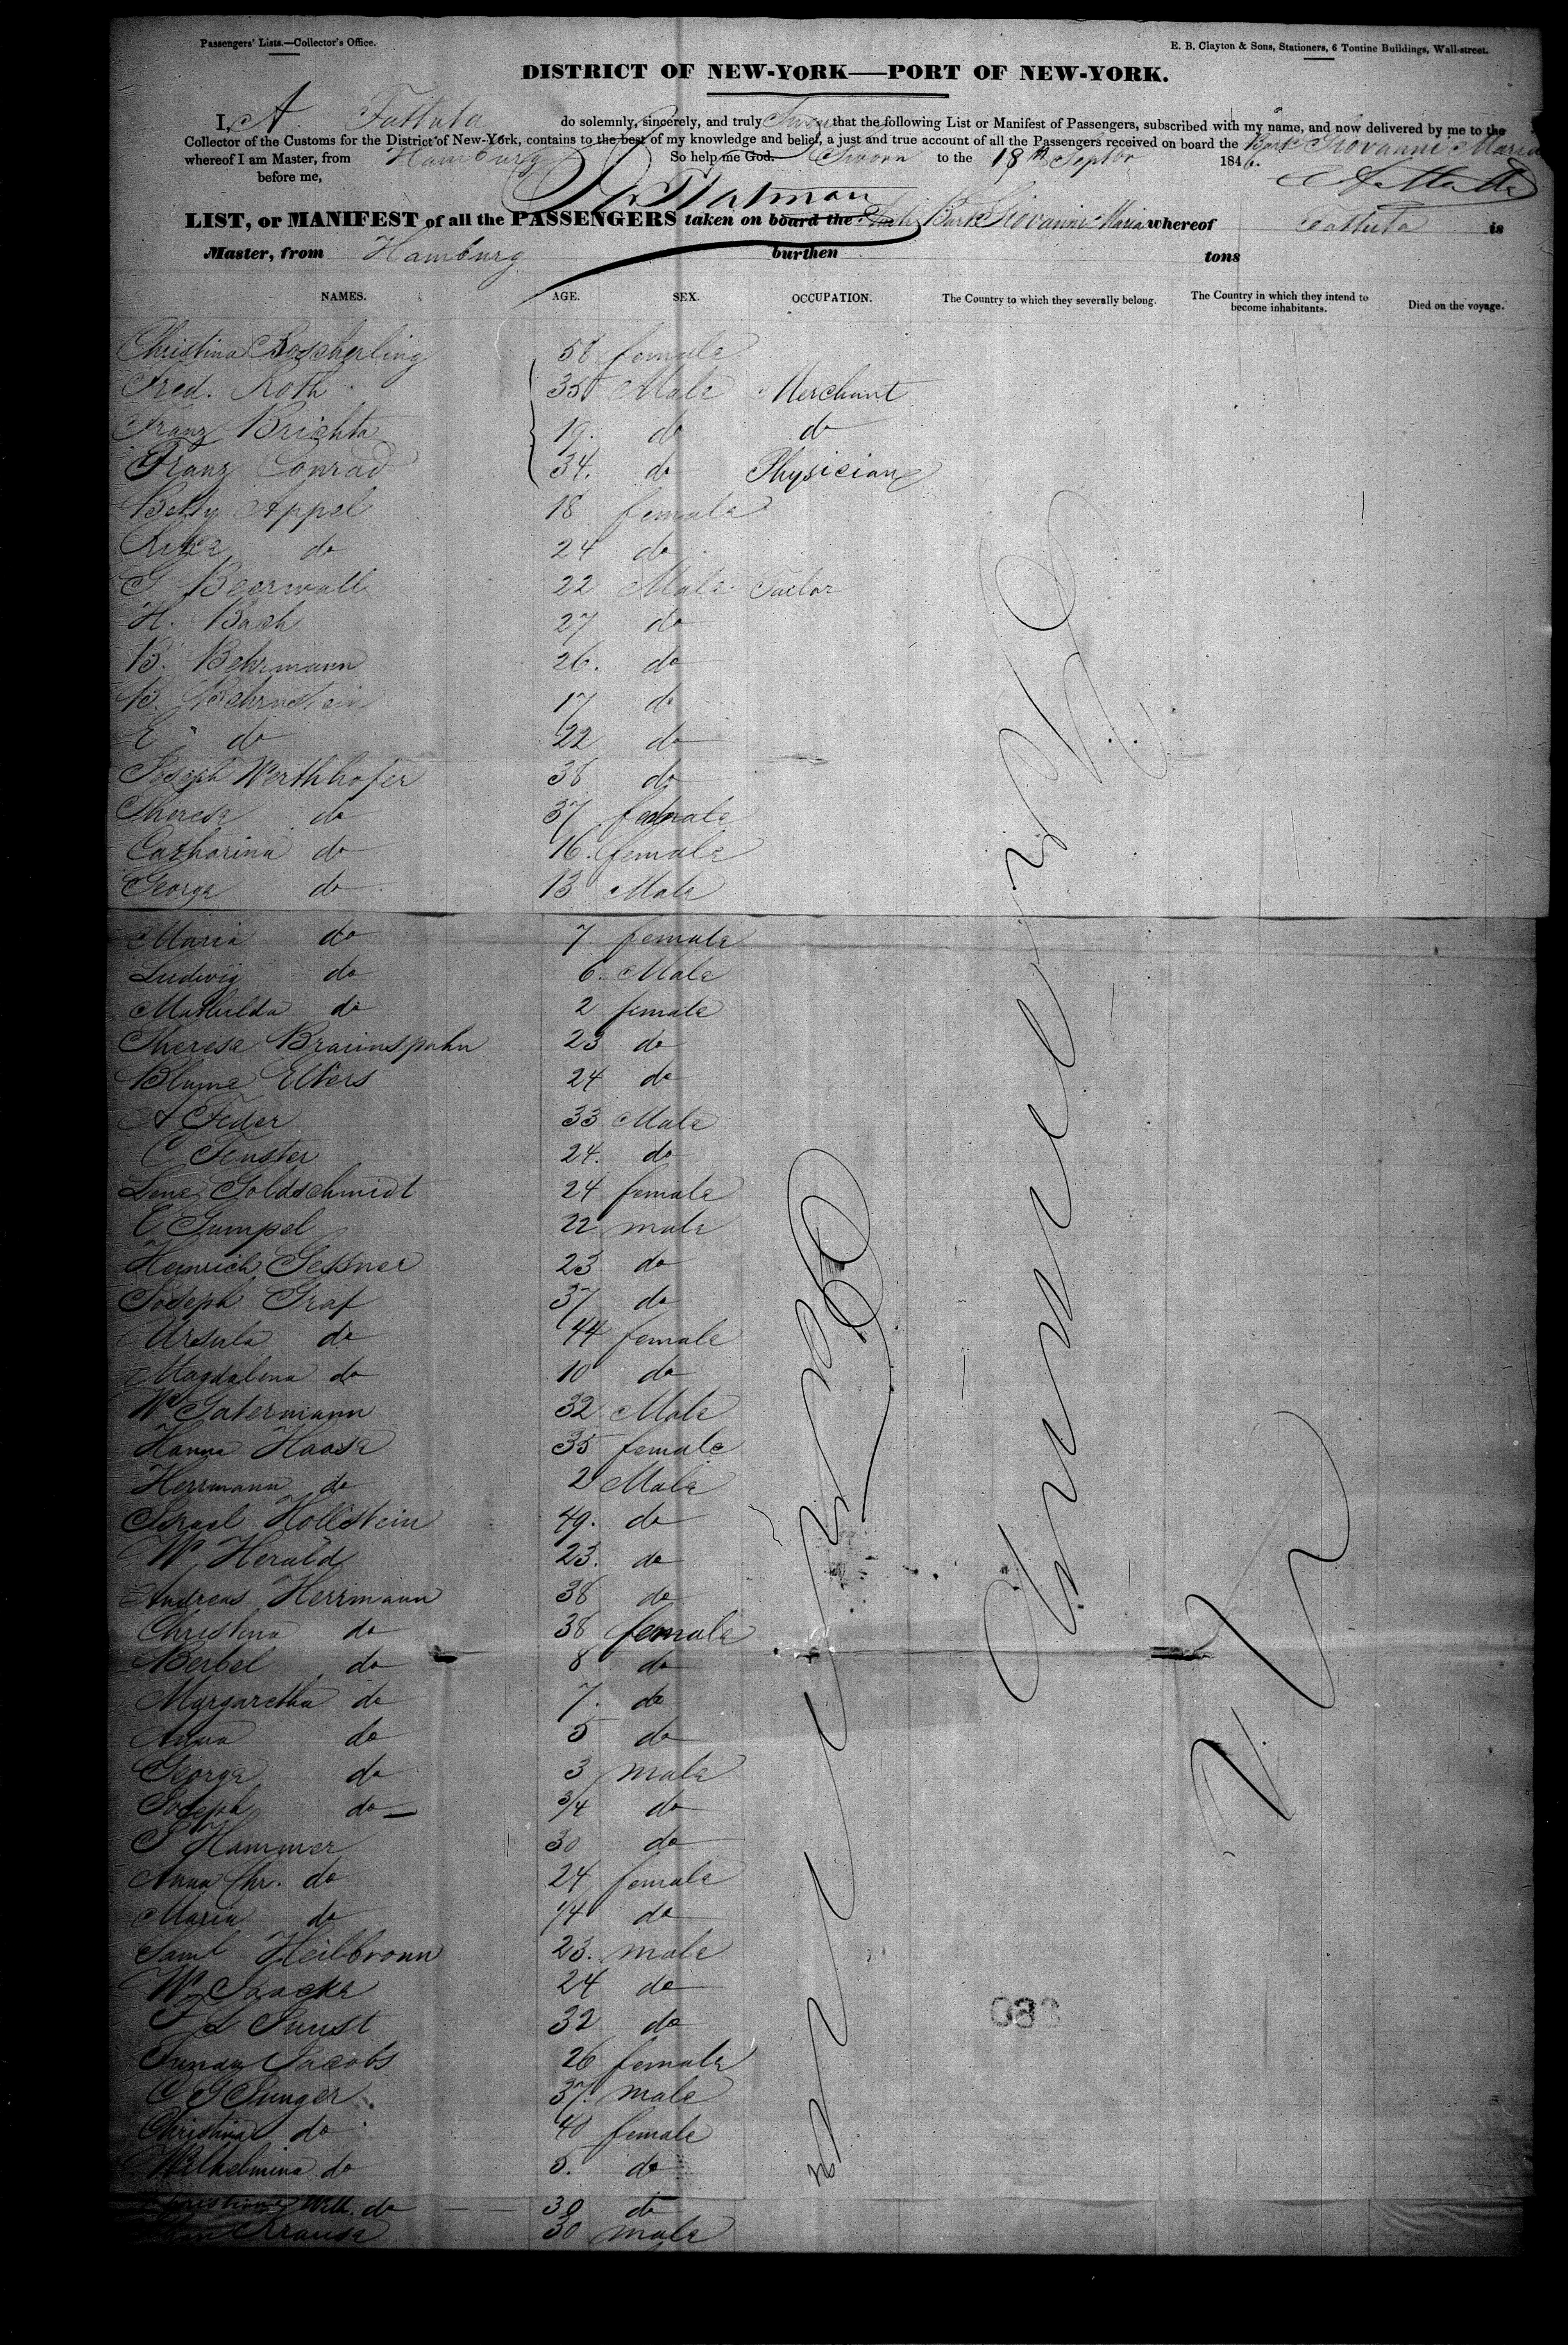 Passengers' Lists.—Collector's Office.
E. B. Clayton & Sons, Stationers, 6 Tontine Buildings, Wall-street.
DISTRICT OF NEW-YORK—PORT OF NEW-YORK.
I, A Tattuta do solemnly, sincerely, and truly that the following List or Manifest of Passengers, subscribed with my name, and now delivered by me to the
Collector of the Customs for the District of New-York, contains to the best of my knowledge and belief, a just and true account of all the Passengers received on board the Bark Giovanni Maria
whereof I am Master, from Hamburg So help me God. Sworn to the 18th Septbr 1846.
before me,
LIST, or MANIFEST of all the PASSENGERS taken on board the Bark Giovanni Maria whereof Tattuta is
Master, from Hamburg burthen tons
NAMES. AGE. SEX. OCCUPATION. The Country to which they severally belong. The Country in which they intend to become inhabitants. Died on the voyage.
Christina 58 female
Fred. Roth 35 Male Merchant
Franz Brichta 19. do do
Franz Conrad 34. do Physician
Betsy Appel 18 female
do 24 do
G Beerwall 22 Male Tailor
H. Bach 27 do
B. Behrmann 26. do
B. Behrnstein 17 do
E " do 22 do
Joseph Werthhofer 38 do
Theresa do 37 female
Catharina do 16. female
George do 13 Male
Maria do 7 female
Ludwig do 6. Male
Mathilda do 2 female
Theresa Braunspahn 23 do
Blume Elkers 24 do
A Feder 33 Male
C Fenster 24. do
Lena Goldschmidt 24 female
C Gumpel 22 male
Heinrich Gessner 23 do
Joseph Graf 37 do
Ursula do 44 female
Magdalena do 10 do
W Gatermann 32 Male
Hanna Haase 35 female
Herrmann do 2 Male
Israel Hollstein 49. do
W. Herald 23. do
Andreas Herrmann 38 do
Christina do 38 female
Berbel do 8 do
Margaretha do 7. do
Anna do 5 do
George do 3 male
Joseph do 3/4 do
J Hammer 30 do
Anna Chr. do 24 female
Maria do 1/4 do
Saml Heilbronn 23. male
W Jaacks 24 do
F L Junst 32 do
Jacobs 26 female
C G Junger 37. male
Christina do 40 female
Wilhelmina do 5. do
Wilh. do 30 do
Krause 30 male
Germany
U S